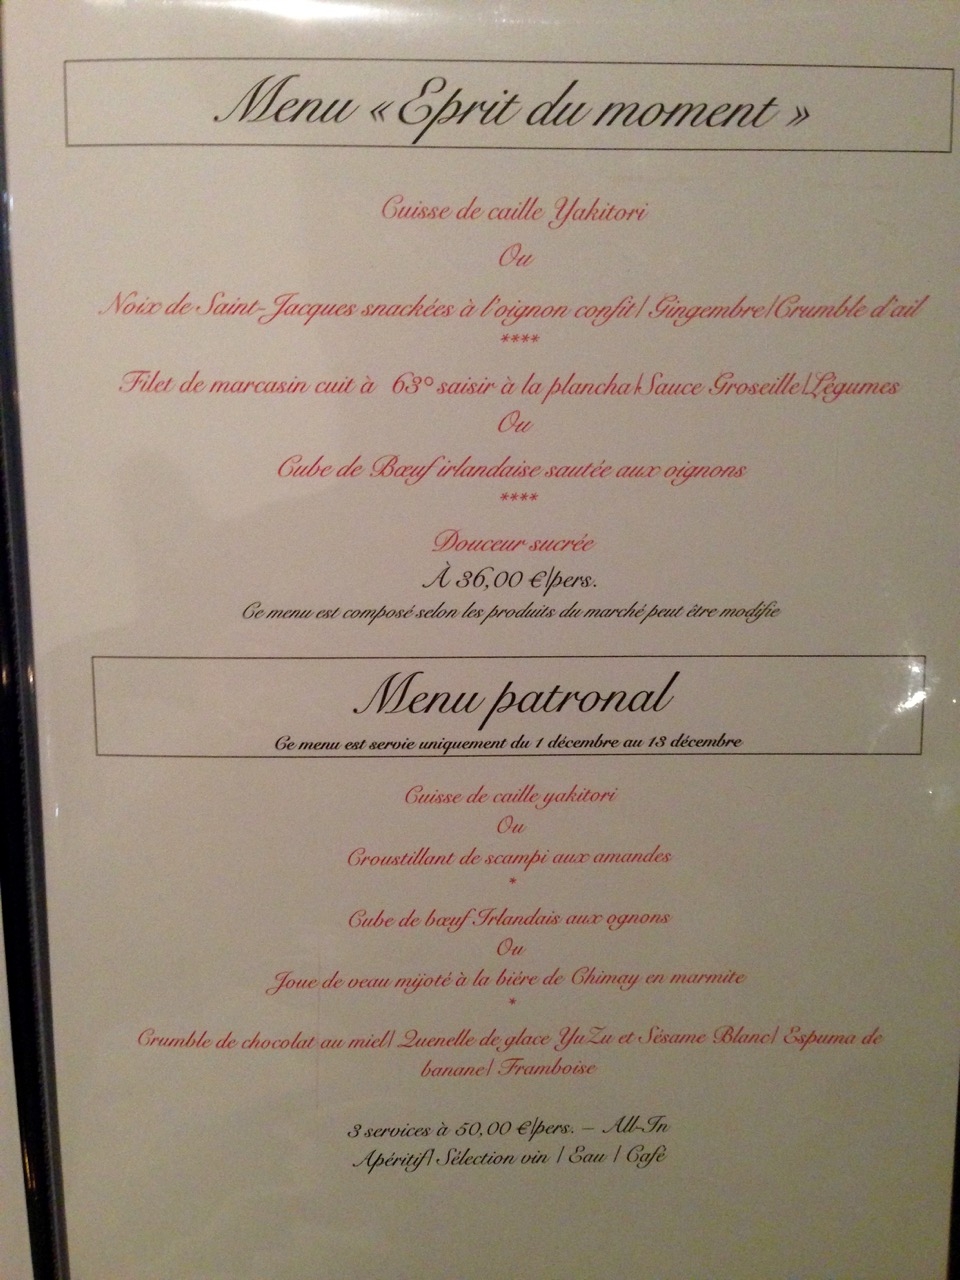 Menu « Eprit du moment »
Cuisse de caille Yakitori
Ou
Noix de Saint-Jacques snackées à l'oignon confit/ Gingembre/Crumble d'ail
****
Filet de marcasin cuit à 63° saisir à la plancha/Sauce Groseille/Légumes
Ou
Cube de Bœuf irlandaise sautée aux oignons
****
Douceur sucrée
À 36,00 €/pers.
Ce menu est composé selon les produits du marché peut être modifie
Menu patronal
Ce menu est servie uniquement du 1 décembre au 13 décembre
Cuisse de caille yakitori
Ou
Croustillant de scampi aux amandes
*
Cube de bœuf Irlandais aux ognons
Ou
Joue de veau mijoté à la biére de Chimay en marmite
*
Crumble de chocolat au miel/ Quenelle de glace YuZu et Sésame Blanc/ Espuma de
banane/ Framboise
3 services à 50,00 €/pers. – All-In
Apéritif/ Sélection vin / Eau / Café